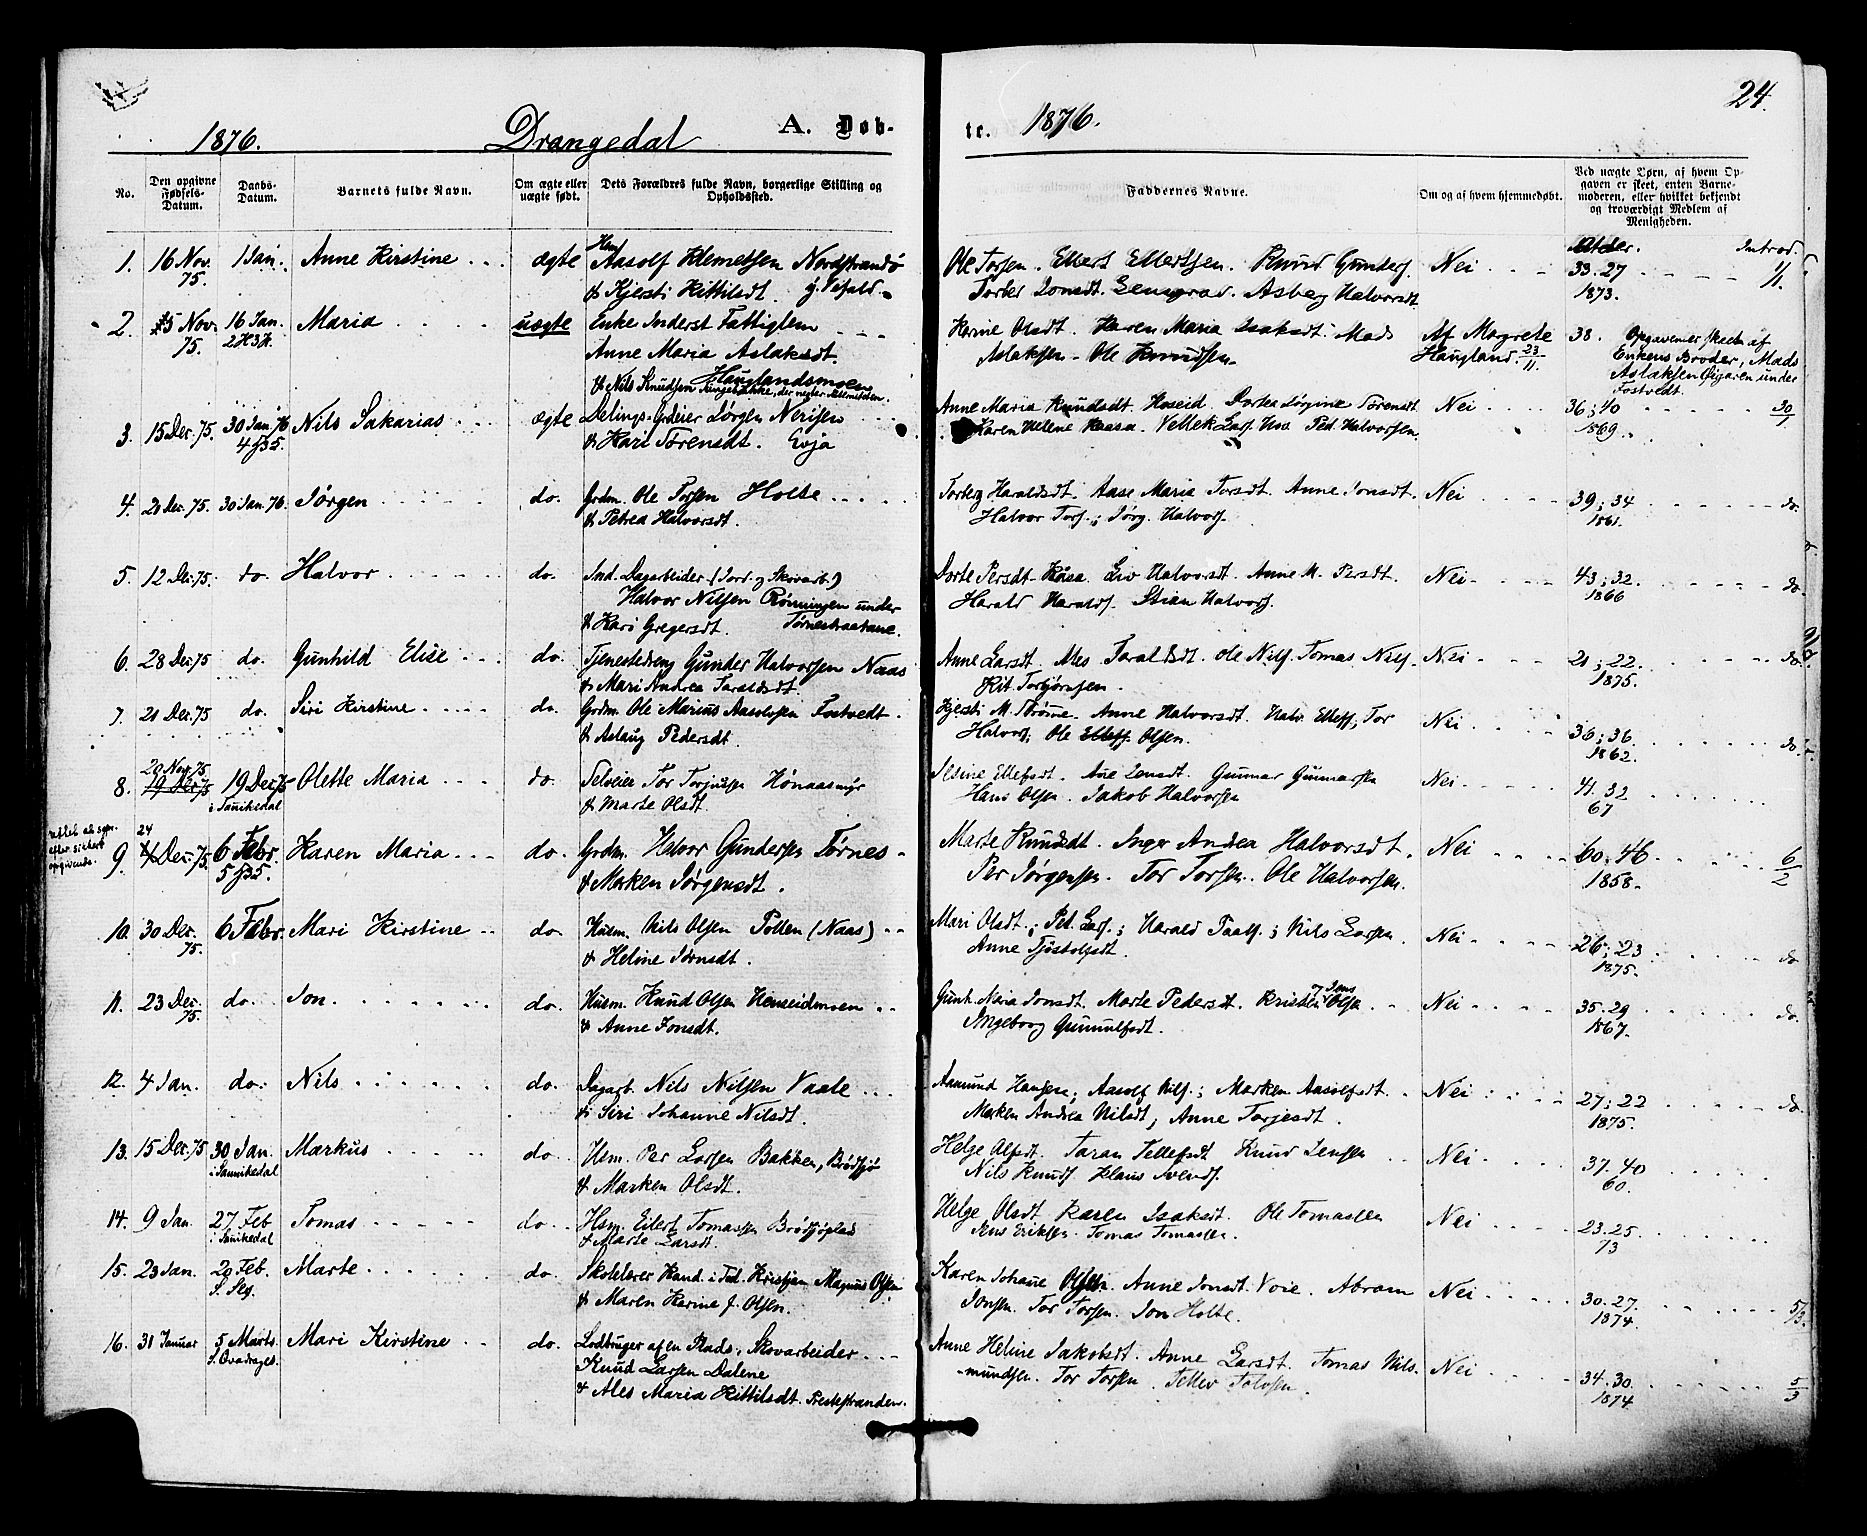 24.
1876. Drangedal A. Døb-
te. 1876.
No. Den opgivne Fødsels-Datum. Daabs-Datum. Barnets fulde Navn. Om ægte eller uægte født. Dets Forældres fulde Navn, borgerlige Stilling og Opholdssted.
Faddernes Navne. Om og af hvem hjemmedøbt. Ved uægte Børn, af hvem Opgaven er skeet, enten Barnemoderen, eller hvilket bekjendt og troværdigt Medlem af Menigheden.
Alder. Introd.
1. 16 Nov. 75. 1 Jan. Anne Kirstine ægte Aasolf Klemetsen Nordstrandø
& Kjersti Kittilsdt.
Ole Torsen. Ellert Ellertsen. Knud Gunders. Nei 33. 27 1/1.
Torber Jonsdt. Asberg Halvorsdt 1873.
2. 15 Nov. 75. 16 Jan. Maria uægte Enke Inderst Fattiglem
Anne Maria Aslaksdt.
Hauglandsmoen
& Nils Knudsen
Karine Olsdt. Karen Maria Isaksdt. Mads Af Margrete 38. Opgaven er skeet af
Aslaksen - Ole Knudsen Haugland. 23/11 Enkens Broder, Mads
Aslaksen under
Fostvedt.
3. 15 Dec. 75. 30 Jan. 76 Nils Sakarias ægte Jørgen Nerisen
& Kari Sørensdt. Evja
Anne Maria Knudsdt. Hoseid. Dortea Jørgine Sørensdt Nei 36; 40 30/1
Karen Helene Kaasa. Ped. Halvorsen. 1869.
4. 21 Dec. 75. 30 Jan. 76. Jørgen do. Grdm. Ole Torsen Holte
& Petrea Halvorsdt.
Torberg Haraldsdt. Aase Maria Torsdt. Anne Jonsdt. Nei 39; 34 do.
Halvor Tors.; Jørg. Halvors. 1861.
5. 12 Dec. 75. do. Halvor do. Ind. Dagarbeider (Jord. og Skovarb.)
Halvor Nilsen Rønningen under
& Kari Gregersdt. Tørnestraatane.
Dorte Persdt Kåsa. Liv Halvorsdt. Anne M. Persdt. Nei 43; 32 do.
Harald Haralds. Stian Halvors. 1866
6. 28 Dec. 75 do. Gunhild Elise do. Tjenestedreng Gunder Halvorsen Naas
& Mari Andrea Taraldsdt.
Anne Larsdt. Mes. Taraldsdt. Ole Nils. Tomas Nils. Nei 21; 22. do.
Kit. Torbjørnsen. 1875.
7. 21 Dec. 75 do. Siri Kirstine do. Grdm. Ole Marius Aasolvsen Fostvedt.
& Aslaug Pedersdt.
Kjersti M. Strøme. Anne Halvorsdt. Halv. Ellefs., Tor Nei 36; 36. do.
Halvors., Ole Ellefs. Olsen. 1862.
8. 20 Nov. 75 19 Dec 75 19 Dec 75 Olette Maria do. Selveier Tor Torjussen Hønaasmyr
i Sannikedal & Marte Olsdt.
Ane Jensdt. Gunnar Gunnarsen Nei 41. 32
Hans Olsen. Jakob Halvorsen 67
9. 24 Dec. 75 6 Febr. Karen Maria do. Grdm. Halvor Gundersen Tørnes
& Marken Jørgensdt.
Marte Knudsdt. Inger Andrea Halvorsdt. Nei 60. 46 6/2
Per Jørgensen. Tor Torsen. Ole Halvorsen. 1858.
10. 30 Dec. 75. 6 Febr. Mari Kirstine do. Husm. Nils Olsen Pollen (Naas)
& Heline Jørnsdt.
Mari Olsdt.; Ped. Lars.; Harald Paals.; Nils Larsen. Nei 26; 23 do
Anne Tjostolfsdt. 1875.
11. 23 Dec. 75. do. Jon. do. Husm. Knud Olsen Henseidmoen
& Anne Jonsdt.
Gunh. Maria Jonsdt. Marte Pedersdt. Kristen og Jens Olsen Nei 35. 29 do.
Ingeborg Gunnulfsdt. 1867.
12. 4 Jan. do. Nils do. Dagarb. Nils Nilsen Vaale
& Siri Johanne Nilsdt.
Aamund Hansen; Aasolf Nils.; Marken Aasolfsdt. Nei 27; 22 do.
Marken Andrea Nilsdt, Anne Torjesdt. 1875.
13. 15 Dec. 75 30 Jan. Markus do. Hsm. Per Larsen Bakken, Brødsjø
i Sannikedal & Marken Olsdt.
Helge Alfsdt. Taran Tellefsdt Knud Jensen Nei 37. 40
Nils Knuds. Klaus Svends. 60.
14. 9 Jan. 27 Feb Tomas do. Hsm. Eilert Tomassen Brødsjøplads
i Sannikedal & Marte Larsdt.
Helge Olsdt Karen Isaksdt. Ole Tomassen Nei 23. 25
Jens Eriksen. Tomas Tomassen. 73
15. 23 Jan. 20 Feb. Marte do. Skolelærer Kand. i Teol. Kristjan Magnus Olsen
& Maren Karine f. Olsen.
Karen Johane Olsen. Anne Jonsdt. Voie. Abram Nei 30. 27. 5/3.
Jonsen. Tor Torsen. Jon Holte. 1874.
16. 31 Januar 5 Marts Mari Kirstine do. Lodbruger af en Plads, Skovarbeider
Knud Larsen Dalene
& Ales Maria Kittilsdt. Prestestranden.
Anne Heline Jakobsdt. Anne Larsdt. Tomas Nils- Nei 34. 30. 5/3
mundsen. Tor Torsen. Tellev Tolvsen. 1874.